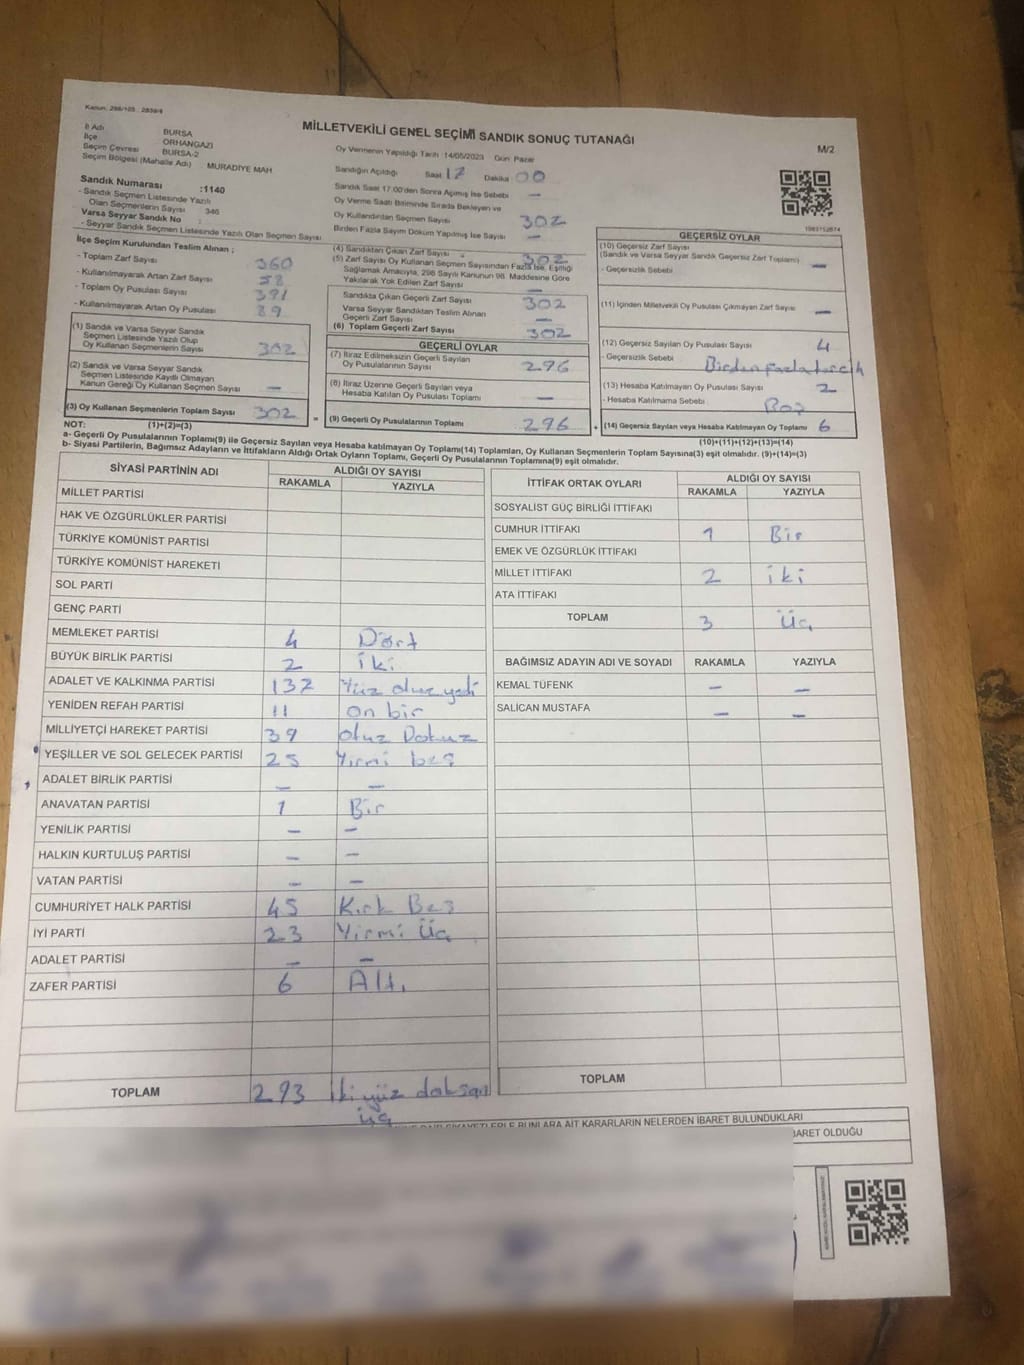 Kanun: 298/105 : 2839/4
MİLLETVEKİLİ GENEL SEÇİMİ SANDIK SONUÇ TUTANAĞI
M/2
İl Adı BURSA
İlçe ORHANGAZİ
Seçim Çevresi BURSA-2
Seçim Bölgesi (Mahalle Adı) MURADİYE MAH
Sandık Numarası :1140
- Sandık Seçmen Listesinde Yazılı
Olan Seçmenlerin Sayısı : 346
Varsa Seyyar Sandık No :
- Seyyar Sandık Seçmen Listesinde Yazılı Olan Seçmen Sayısı
İlçe Seçim Kurulundan Teslim Alınan ;
- Toplam Zarf Sayısı 360
- Kullanılmayarak Artan Zarf Sayısı 58
- Toplam Oy Pusulası Sayısı 391
- Kullanılmayarak Artan Oy Pusulası 89
(1) Sandık ve Varsa Seyyar Sandık
Seçmen Listesinde Yazılı Olup
Oy Kullanan Seçmenlerin Sayısı 302
(2) Sandık ve Varsa Seyyar Sandık
Seçmen Listesinde Kayıtlı Olmayan
Kanun Gereği Oy Kullanan Seçmen Sayısı –
(3) Oy Kullanan Seçmenlerin Toplam Sayısı 302
Oy Vermenin Yapıldığı Tarih :14/05/2023 Gün: Pazar
Sandığın Açıldığı Saat 17 Dakika 00
Sandık Saat 17:00'den Sonra Açımış İse Sebebi –
Oy Verme Saati Bitiminde Sırada Bekleyen ve
Oy Kullandırılan Seçmen Sayısı 302
Birden Fazla Sayım Döküm Yapılmış İse Sayısı –
(4) Sandıktan Çıkan Zarf Sayısı 302
(5) Zarf Sayısı Oy Kullanan Seçmen Sayısından Fazla İse, Eşitliği
Sağlamak Amacıyla, 298 Sayılı Kanunun 98. Maddesine Göre
Yakılarak Yok Edilen Zarf Sayısı –
Sandıkta Çıkan Geçerli Zarf Sayısı 302
Varsa Seyyar Sandıktan Teslim Alınan
Geçerli Zarf Sayısı –
(6) Toplam Geçerli Zarf Sayısı 302
GEÇERLİ OYLAR
(7) İtiraz Edilmeksizin Geçerli Sayılan
Oy Pusulalarının Sayısı 296
(8) İtiraz Üzerine Geçerli Sayılan veya
Hesaba Katılan Oy Pusulası Toplamı –
= (9) Geçerli Oy Pusulalarının Toplamı 296
1083152674
GEÇERSİZ OYLAR
(10) Geçersiz Zarf Sayısı
(Sandık ve Varsa Seyyar Sandık Geçersiz Zarf Toplamı) –
- Geçersizlik Sebebi
(11) İçinden Milletvekili Oy Pusulası Çıkmayan Zarf Sayısı –
(12) Geçersiz Sayılan Oy Pusulası Sayısı 4
- Geçersizlik Sebebi Birden fazla tercih
(13) Hesaba Katılmayan Oy Pusulası Sayısı 2
- Hesaba Katılmama Sebebi Boş
+ (14) Geçersiz Sayılan veya Hesaba Katılmayan Oy Toplamı 6
NOT: (1)+(2)=(3) (10)+(11)+(12)+(13)=(14)
a- Geçerli Oy Pusulalarının Toplamı(9) ile Geçersiz Sayılan veya Hesaba katılmayan Oy Toplamı(14) Toplamları, Oy Kullanan Seçmenlerin Toplam Sayısına(3) eşit olmalıdır. (9)+(14)=(3)
b- Siyasi Partilerin, Bağımsız Adayların ve İttifakların Aldığı Ortak Oyların Toplamı, Geçerli Oy Pusulalarının Toplamına(9) eşit olmalıdır.
SİYASİ PARTİNİN ADI ALDIĞI OY SAYISI
RAKAMLA YAZIYLA
MİLLET PARTİSİ
HAK VE ÖZGÜRLÜKLER PARTİSİ
TÜRKİYE KOMÜNİST PARTİSİ
TÜRKİYE KOMÜNİST HAREKETİ
SOL PARTİ
GENÇ PARTİ
MEMLEKET PARTİSİ 4 Dört
BÜYÜK BİRLİK PARTİSİ 2 iki
ADALET VE KALKINMA PARTİSİ 137 Yüz otuz yedi
YENİDEN REFAH PARTİSİ 11 on bir
MİLLİYETÇİ HAREKET PARTİSİ 39 otuz Dokuz
YEŞİLLER VE SOL GELECEK PARTİSİ 25 Yirmi beş
ADALET BİRLİK PARTİSİ – –
ANAVATAN PARTİSİ 1 Bir
YENİLİK PARTİSİ – –
HALKIN KURTULUŞ PARTİSİ – –
VATAN PARTİSİ – –
CUMHURİYET HALK PARTİSİ 45 Kırk Beş
İYİ PARTİ 23 Yirmi Üç
ADALET PARTİSİ – –
ZAFER PARTİSİ 6 Altı
TOPLAM 293 İki yüz doksan
üç
İTTİFAK ORTAK OYLARI ALDIĞI OY SAYISI
RAKAMLA YAZIYLA
SOSYALİST GÜÇ BİRLİĞİ İTTİFAKI
CUMHUR İTTİFAKI 1 Bir
EMEK VE ÖZGÜRLÜK İTTİFAKI
MİLLET İTTİFAKI 2 iki
ATA İTTİFAKI
TOPLAM 3 Üç
BAĞIMSIZ ADAYIN ADI VE SOYADI RAKAMLA YAZIYLA
KEMAL TÜFENK – –
SALİCAN MUSTAFA – –
TOPLAM
BUNLARA AİT KARARLARIN NELERDEN İBARET BULUNDUKLARI
İBARET OLDUĞU